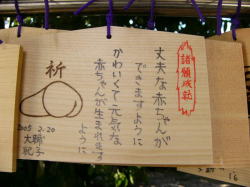 諸願成就
丈夫な赤ちゃんが
できますように
かわいくて元気な
赤ちゃんが生まれます
ように
祈
2005 2.20
16